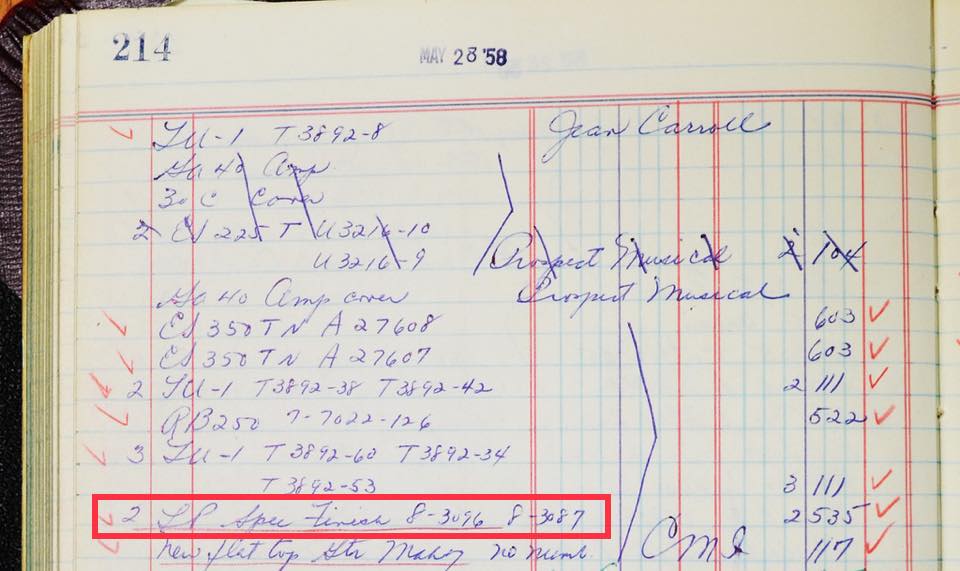 214
MAY 28 '58
LU-1 T3892-8 Jean Carroll
Ga 40 Amp
30 C Cover
2 ES 225 T U3216-10
U3216-9 Prospect Musical 2 104
Ga 40 Amp cover Prospect Musical
ES 350 TN A 27608 603
ES 350 TN A 27607 603
2 LU-1 T3892-38 T3892-42 2 111
RB250 7-7022-126 522
3 LU-1 T3892-60 T3892-34
T3892-53 3 111
2 LP Spec Finish 8-3096 8-3087 2 535
New flat top Gtr Mahog no numb. CMI 117